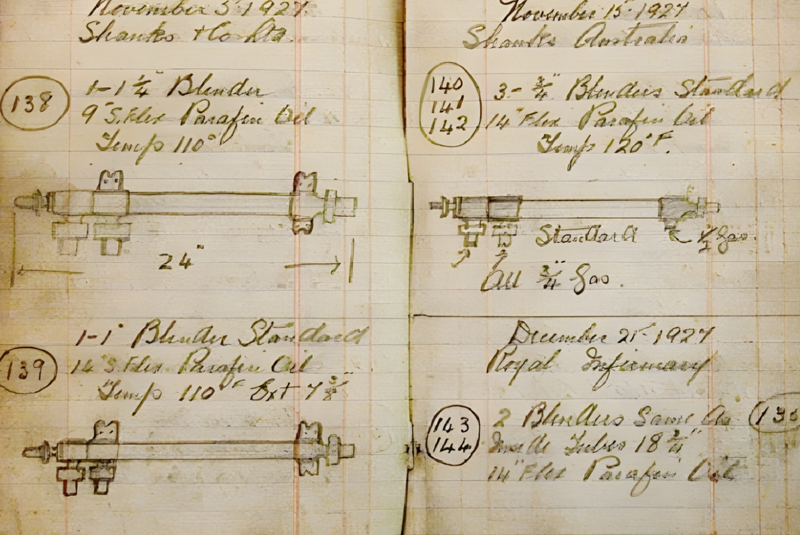 November 3rd 1927
Shanks & Co Ltd.
138
1-1 1/4" Blender
9" S. Flex Parafin Oil
Temp 110°
24"
139
1-1" Blender Standard
14" S. Flex Parafin Oil
Temp 110°F Ext 7 3/8"
November 15th 1927
Shanks Australia
140
141
142
3-3/4" Blenders Standard
14" Flex Parafin Oil
Temp 120°F.
Standard
1/2 Gas.
All 3/4" Gas.
December 21st 1927
Royal Infirmary
143
144
2 Blenders Same As
Inside Tubes 18 3/4"
14" Flex Parafin Oil